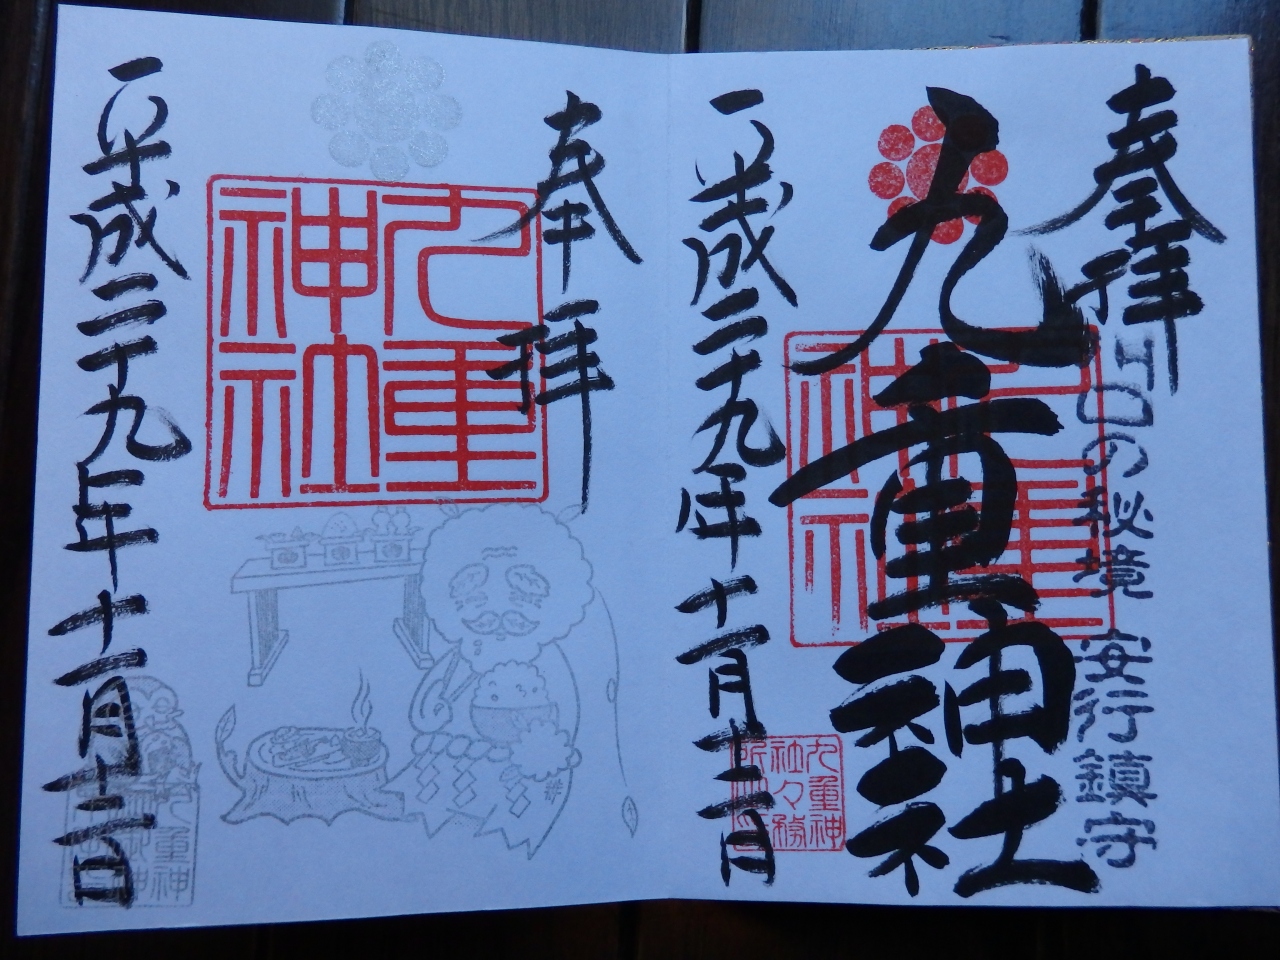 奉拝
川口の秘境 安行鎮守
九重神社
九重神社
九重神
社々務
平成二十九年十一月十二日
奉拝
九重神社
平成二十九年十一月十二日
九重神